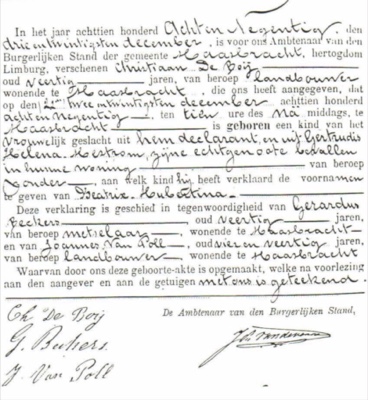 In het jaar achttien honderd Acht en Negentig, den
drie en twintigsten december, is voor ons Ambtenaar van den
Burgerlijken Stand der gemeente Maasbracht, hertogdom
Limburg, verschenen Christiaan De Boij
oud veertig jaren, van beroep landbouwer
wonende te Maasbracht, die ons heeft aangegeven, dat
op den twee en twintigsten december achttien honderd
acht en negentig, ten tien ure des na middags, te
Maasbracht is geboren een kind van het
vrouwelijk geslacht uit hem declarant, en uit Gertrudis
Helena Mestrom, zijne echtgenoote bevallen
in hunne woning van beroep
zonder, aan welk kind hij heeft verklaard de voornamen
te geven van Beatrix Hubertina.
Deze verklaring is geschied in tegenwoordigheid van Gerardus
Beckers oud veertig jaren,
van beroep metselaar, wonende te Maasbracht
en van Joannes Van Poll, oud vier en veertig jaren,
van beroep landbouwer, wonende te Maasbracht
Waarvan door ons deze geboorte-akte is opgemaakt, welke na voorlezing
aan den aangever en aan de getuigen met ons is geteekend.
Ch. De Boij De Ambtenaar van den Burgerlijken Stand,
G. Beckers
J. Van Poll